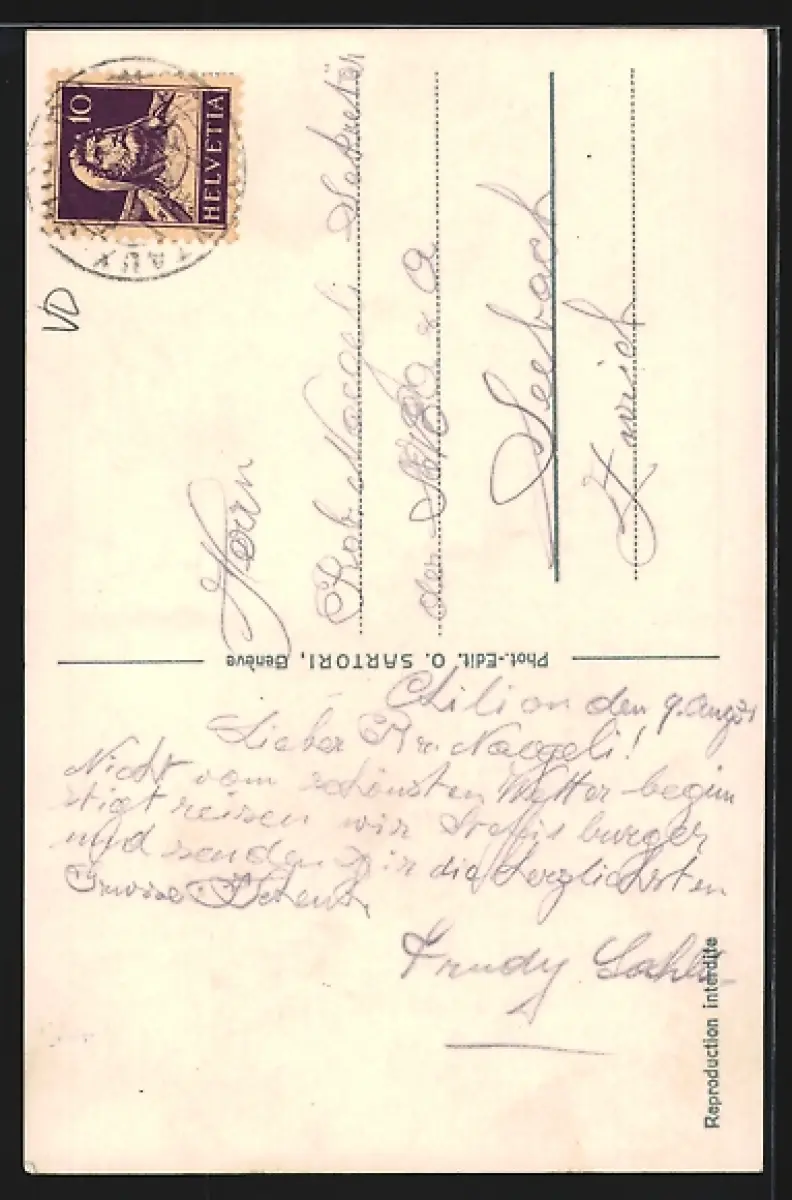 10
HELVETIA
TAUX
VD
Herrn
Rob. Naegeli Sekretär
der
Seebach
Zürich
Phot.-Edit. O. SARTORI, Genève
Chilion den 9. Aug 31
Lieber Naegeli!
Nicht vom schönsten Wetter begün
stigt reisen wir burger
und senden Dir die herzlichsten
Grüsse
Trudy
Reproduction interdite